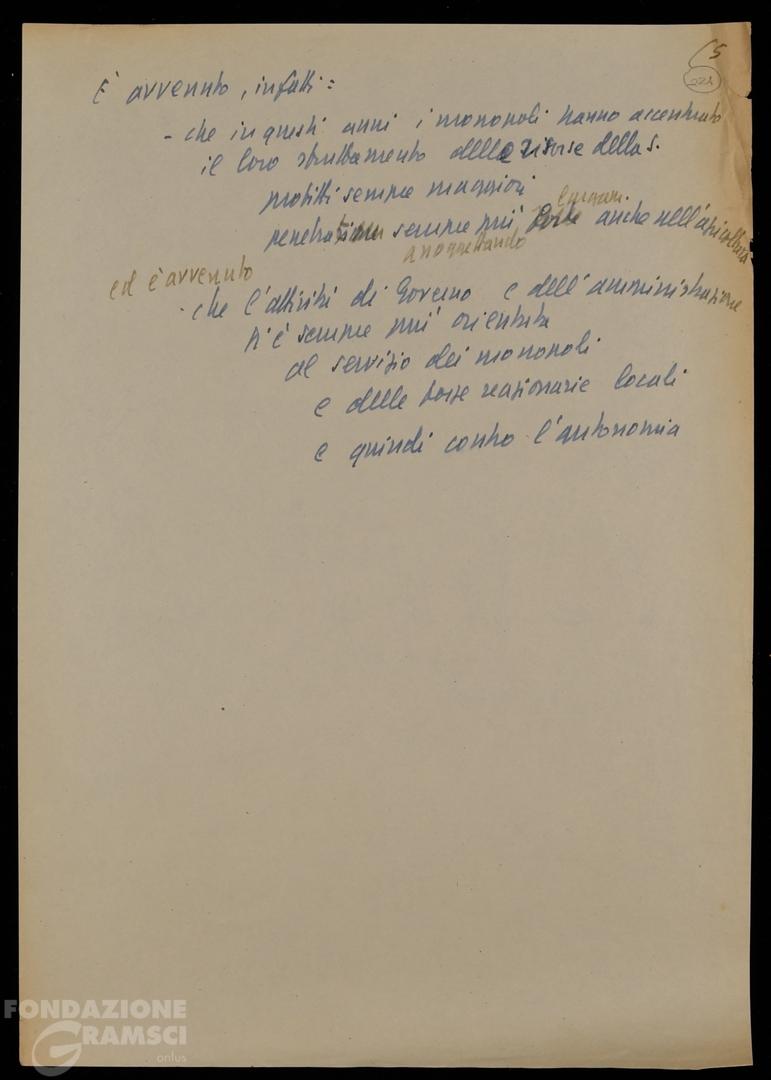 5
È avvenuto, infatti:
- che in questi anni i monopoli hanno accentrato
il loro sfruttamento delle risorse della S.
profitti sempre maggiori
sempre più forte anche nell'agricoltura
assoggettando
ed è avvenuto
- che l'attività di Governo e dell'amministrazione
si è sempre più orientata
al servizio dei monopoli
e delle forze reazionarie locali
e quindi contro l'autonomia
FONDAZIONE
GRAMSCI
onlus